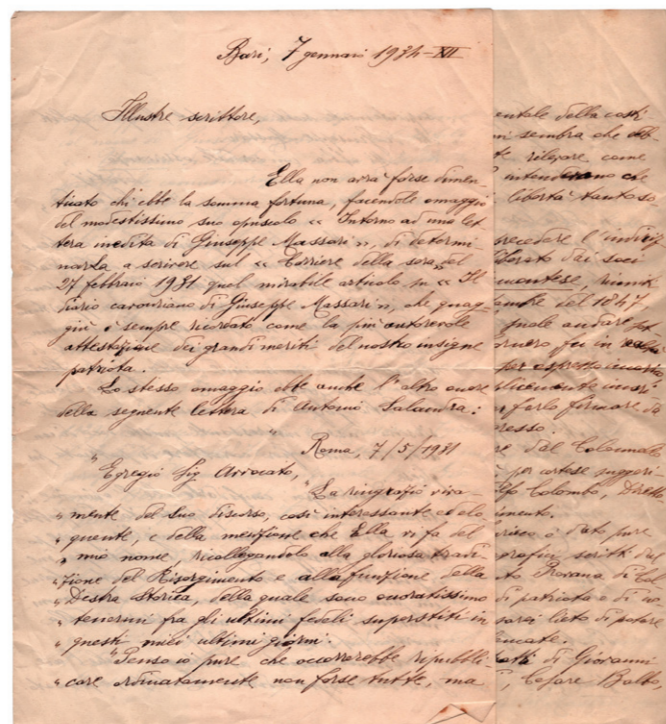 Bari, 7 gennaio 1934-XII
Illustre scrittore,
Ella non avrà forse dimen-
ticato chi ebbe la somma fortuna, facendole omaggio
del modestissimo suo opuscolo « Intorno ad una let
tera inedita di Giuseppe Massari », di determi
narLa a scrivere sul « Corriere della sera » del
27 febbraio 1931 quel mirabile articolo su « Il
diario cavouriano di Giuseppe Massari », che quag-
giù è sempre ricordato come la più autorevole
attestazione dei grandi meriti del nostro insigne
patriota.
Lo stesso omaggio ebbe anche l'altro onore
della seguente lettera di Antonio Salandra:
" Roma, 7/5/1931
" Egregio Sig. Avvocato,
" La ringrazio viva-
" mente del Suo discorso, così interessante ed elo
" quente, e della menzione che Ella vi fa del
" mio nome, ricollegandolo alla gloriosa tradi-
" zione del Risorgimento e alla funzione della
" Destra storica, della quale sono onoratissimo
" tenermi fra gli ultimi fedeli superstiti in
" questi miei ultimi giorni.
" Penso io pure che occorrerebbe ripubbli
" care ordinatamente non forse tutte, ma
entale della costi
mi sembra che
rilevare come
intendevano che
libertà tanto
precedere l'
dai soci
montese,
del 1847,
quale andare
per espresso
farlo firmare da
resso.
re dal Colonnello
per cortese suggeri
Colombo, Diretto
imento.
è dato pure
scritti
di patriota e di
sarei lieto di potere
di Giovanni
, Cesare Balbo,